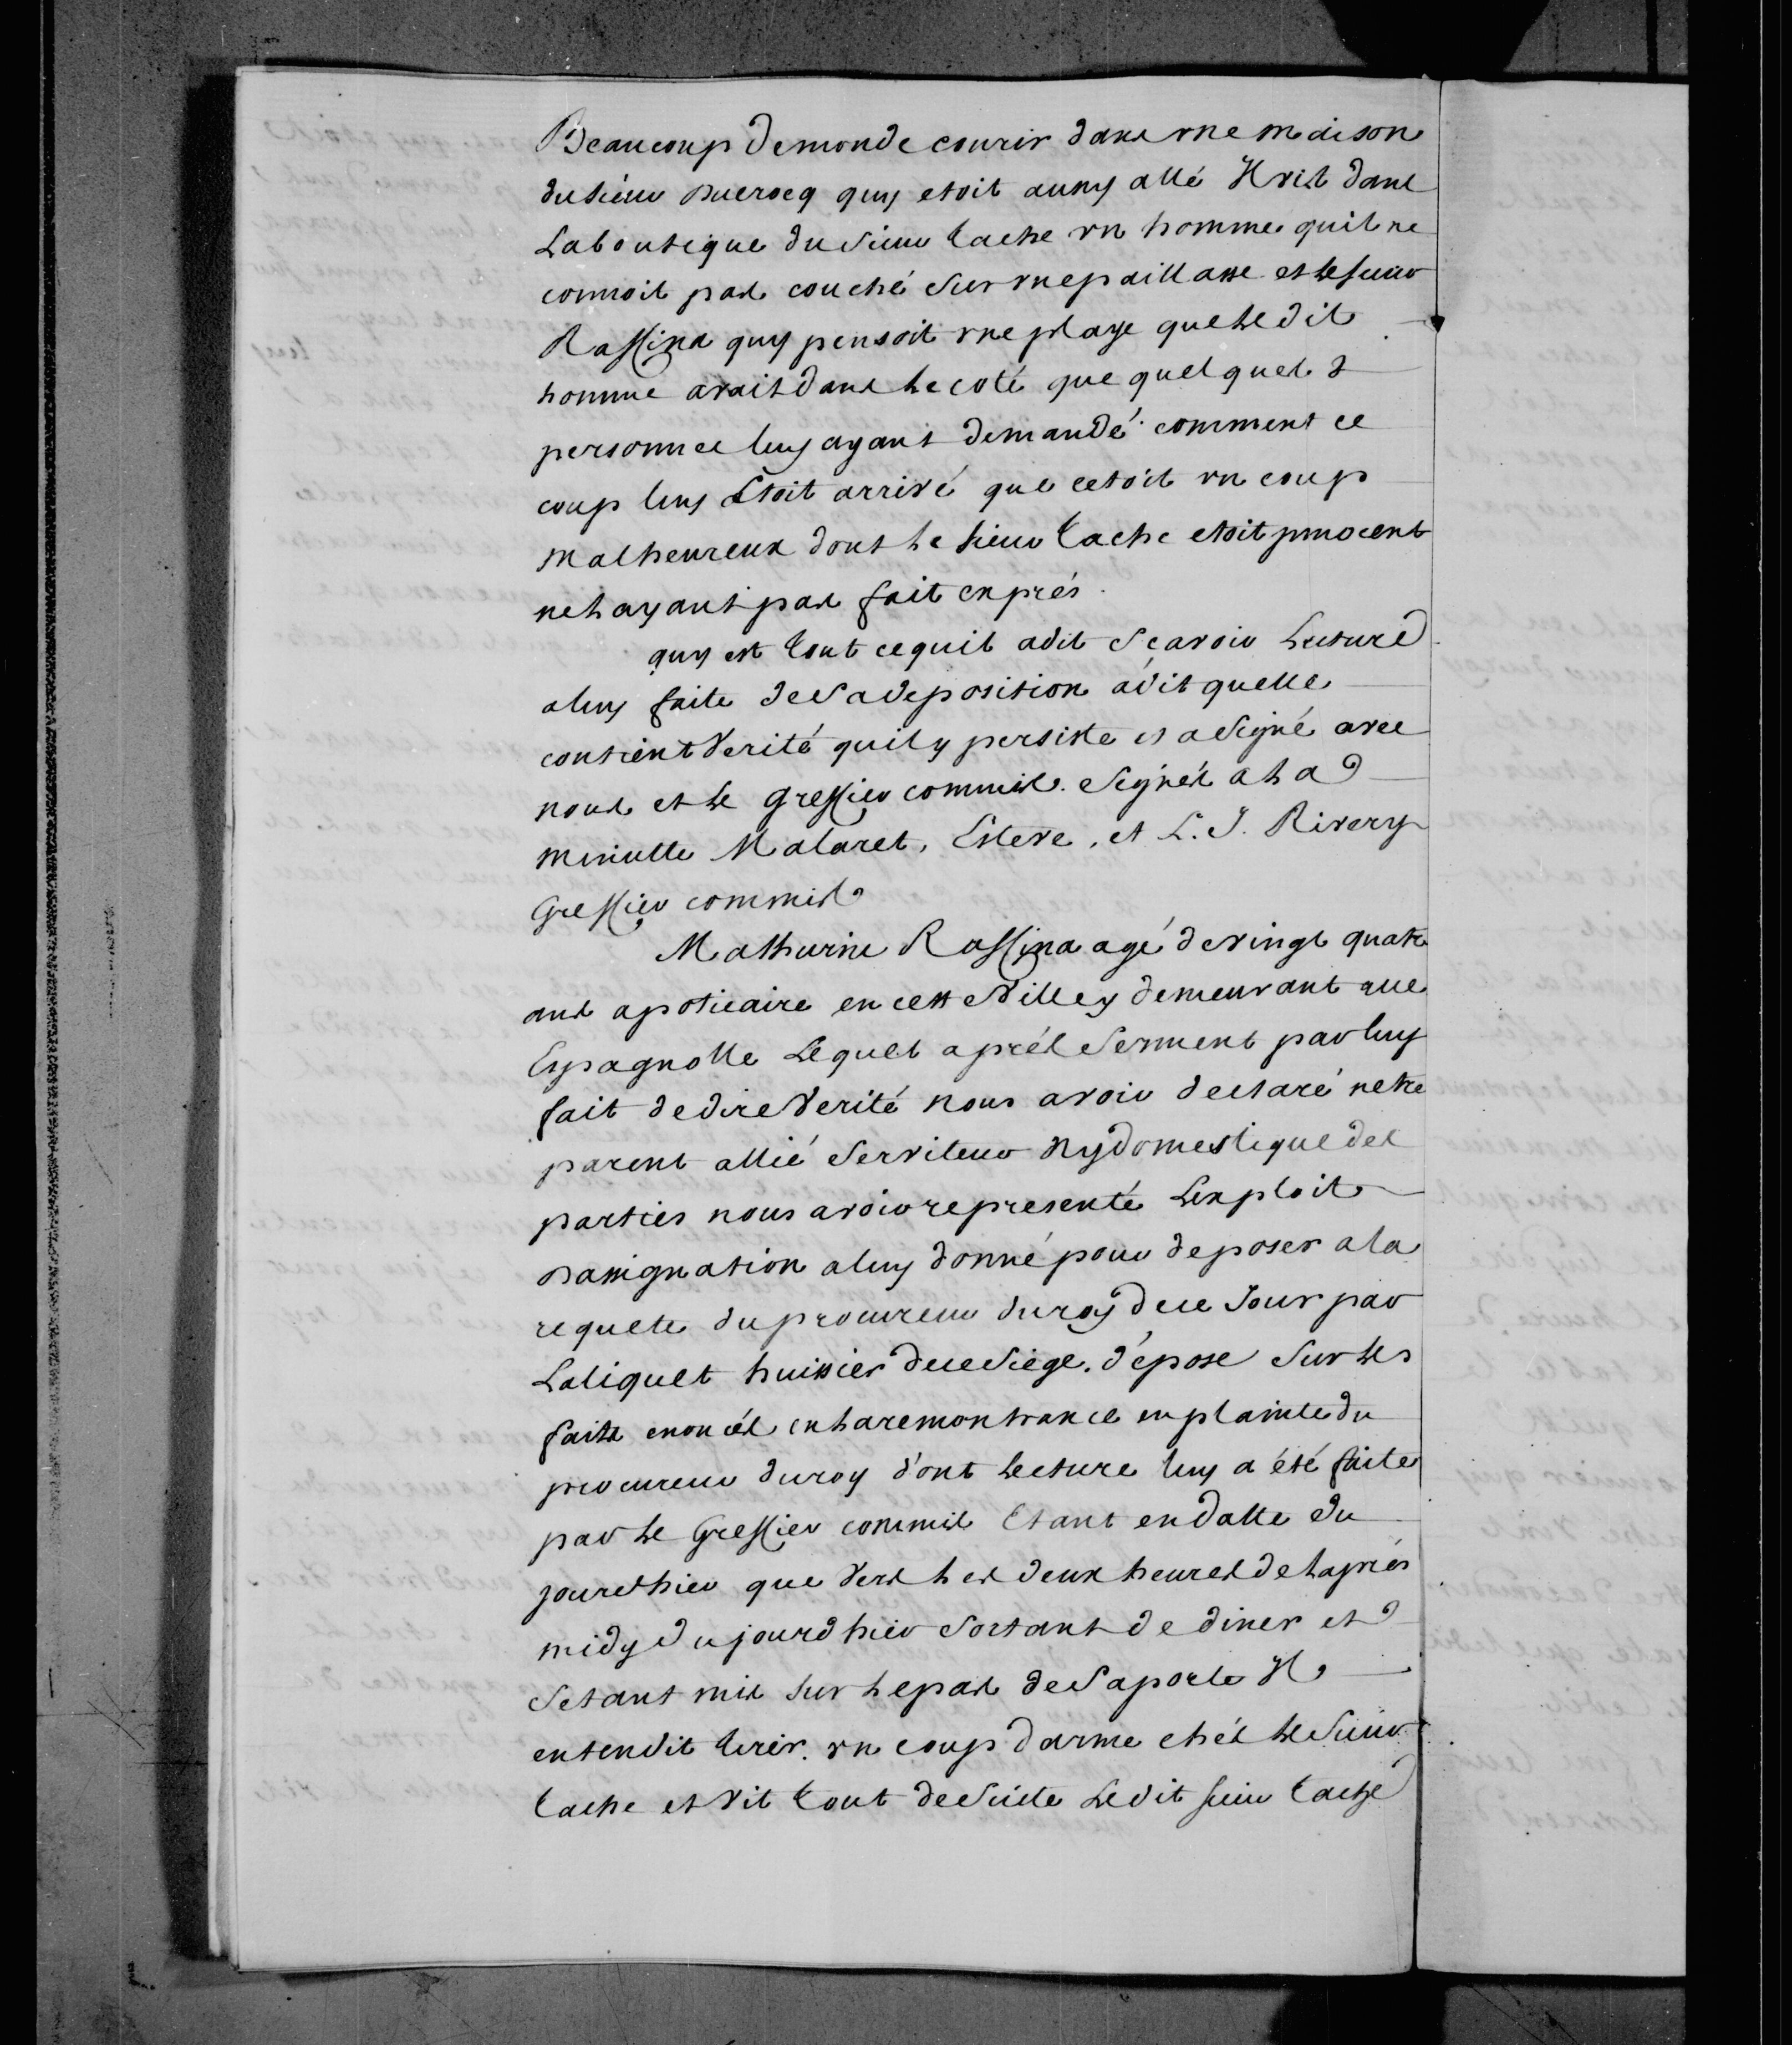 Beaucoup de monde courir dans une maison
du sieur Ducrocq quy etoit aussy allé Il vit dans
La boutique du Sieur Cache un homme quil ne
connoit pas couché Sur une paillasse et le sieur
Rassina quy pensoit une playe que le dit
homme avait dans le coté que quelques
personnes luy ayant demandé comment ce
coup luy Etoit arrivé que cetoit un coup
malheureux dont le sieur Cache etoit innocent
ne layant pas fait exprés.
quy est tout ce quil a dit Scavoir Lecture
a luy faite de Sa deposition a dit quelle
contient Verité quil y persiste et a Signé avec
nous et le Greffier commis. Signés a la
minutte Malaret, Esteve, et L. J. Rivery
Greffier commis
Mathurin Rassina agé de vingt quatre
ans apoticaire en cette Ville y demeurant rue
Espagnolle Lequel aprés Serment par luy
fait de dire Verité nous avoir declaré netre
parent allié Serviteur Ny domestique des
parties nous avoir representé Lexploit
dassignation a luy donné pour deposer a la
requete du procureur du roy de ce Jour par
Laliquet huissier de ce Siege. dépose Sur les
faits enoncés en la remontrance en plainte du
procureur du roy dont lecture luy a été faite
par le Greffier commis Etant en datte du
jour dhier que Vers les deux heures de laprés
midy du jour dhier Sortant de diner et
Setant mis Sur le pas de Sa porte Il
entendit tirer. un coup darme chés le Sieur
Cache et Vit tout de Suite Le dit sieur Cache